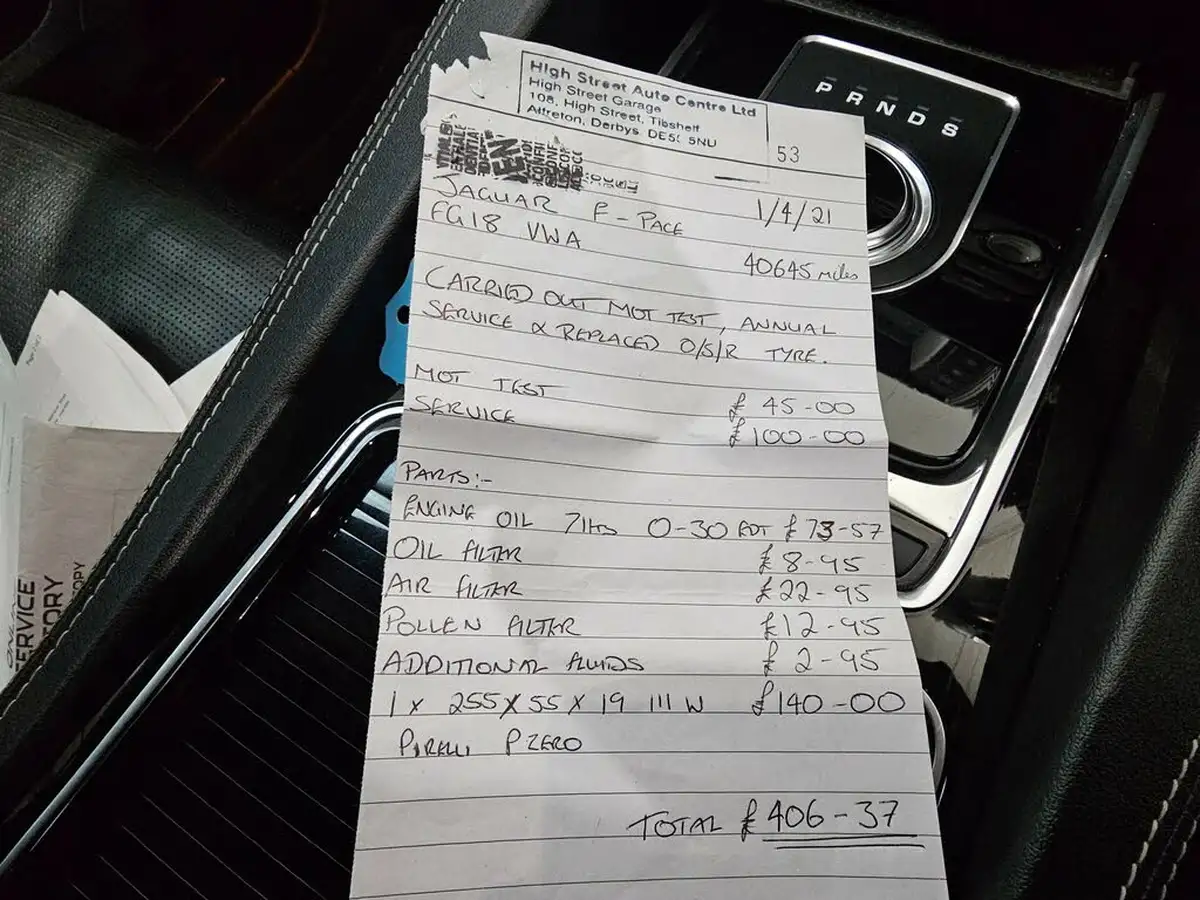 High Street Auto Centre Ltd
High Street Garage
108, High Street, Tibshelf
Alfreton, Derbys, DE55 5NU
53
JAGUAR F-PACE 1/4/21
FG18 VWA
40645 miles
CARRIED OUT MOT TEST, ANNUAL
SERVICE & REPLACED O/S/R TYRE.
MOT TEST £45-00
SERVICE £100-00
PARTS:-
ENGINE OIL 7lts 0-30 £73-57
OIL FILTER £8-95
AIR FILTER £22-95
POLLEN FILTER £12-95
ADDITIONAL FLUIDS £2-95
1 x 255 x 55 x 19 111 W £140-00
PIRELLI P ZERO
TOTAL £406-37
P R N D S